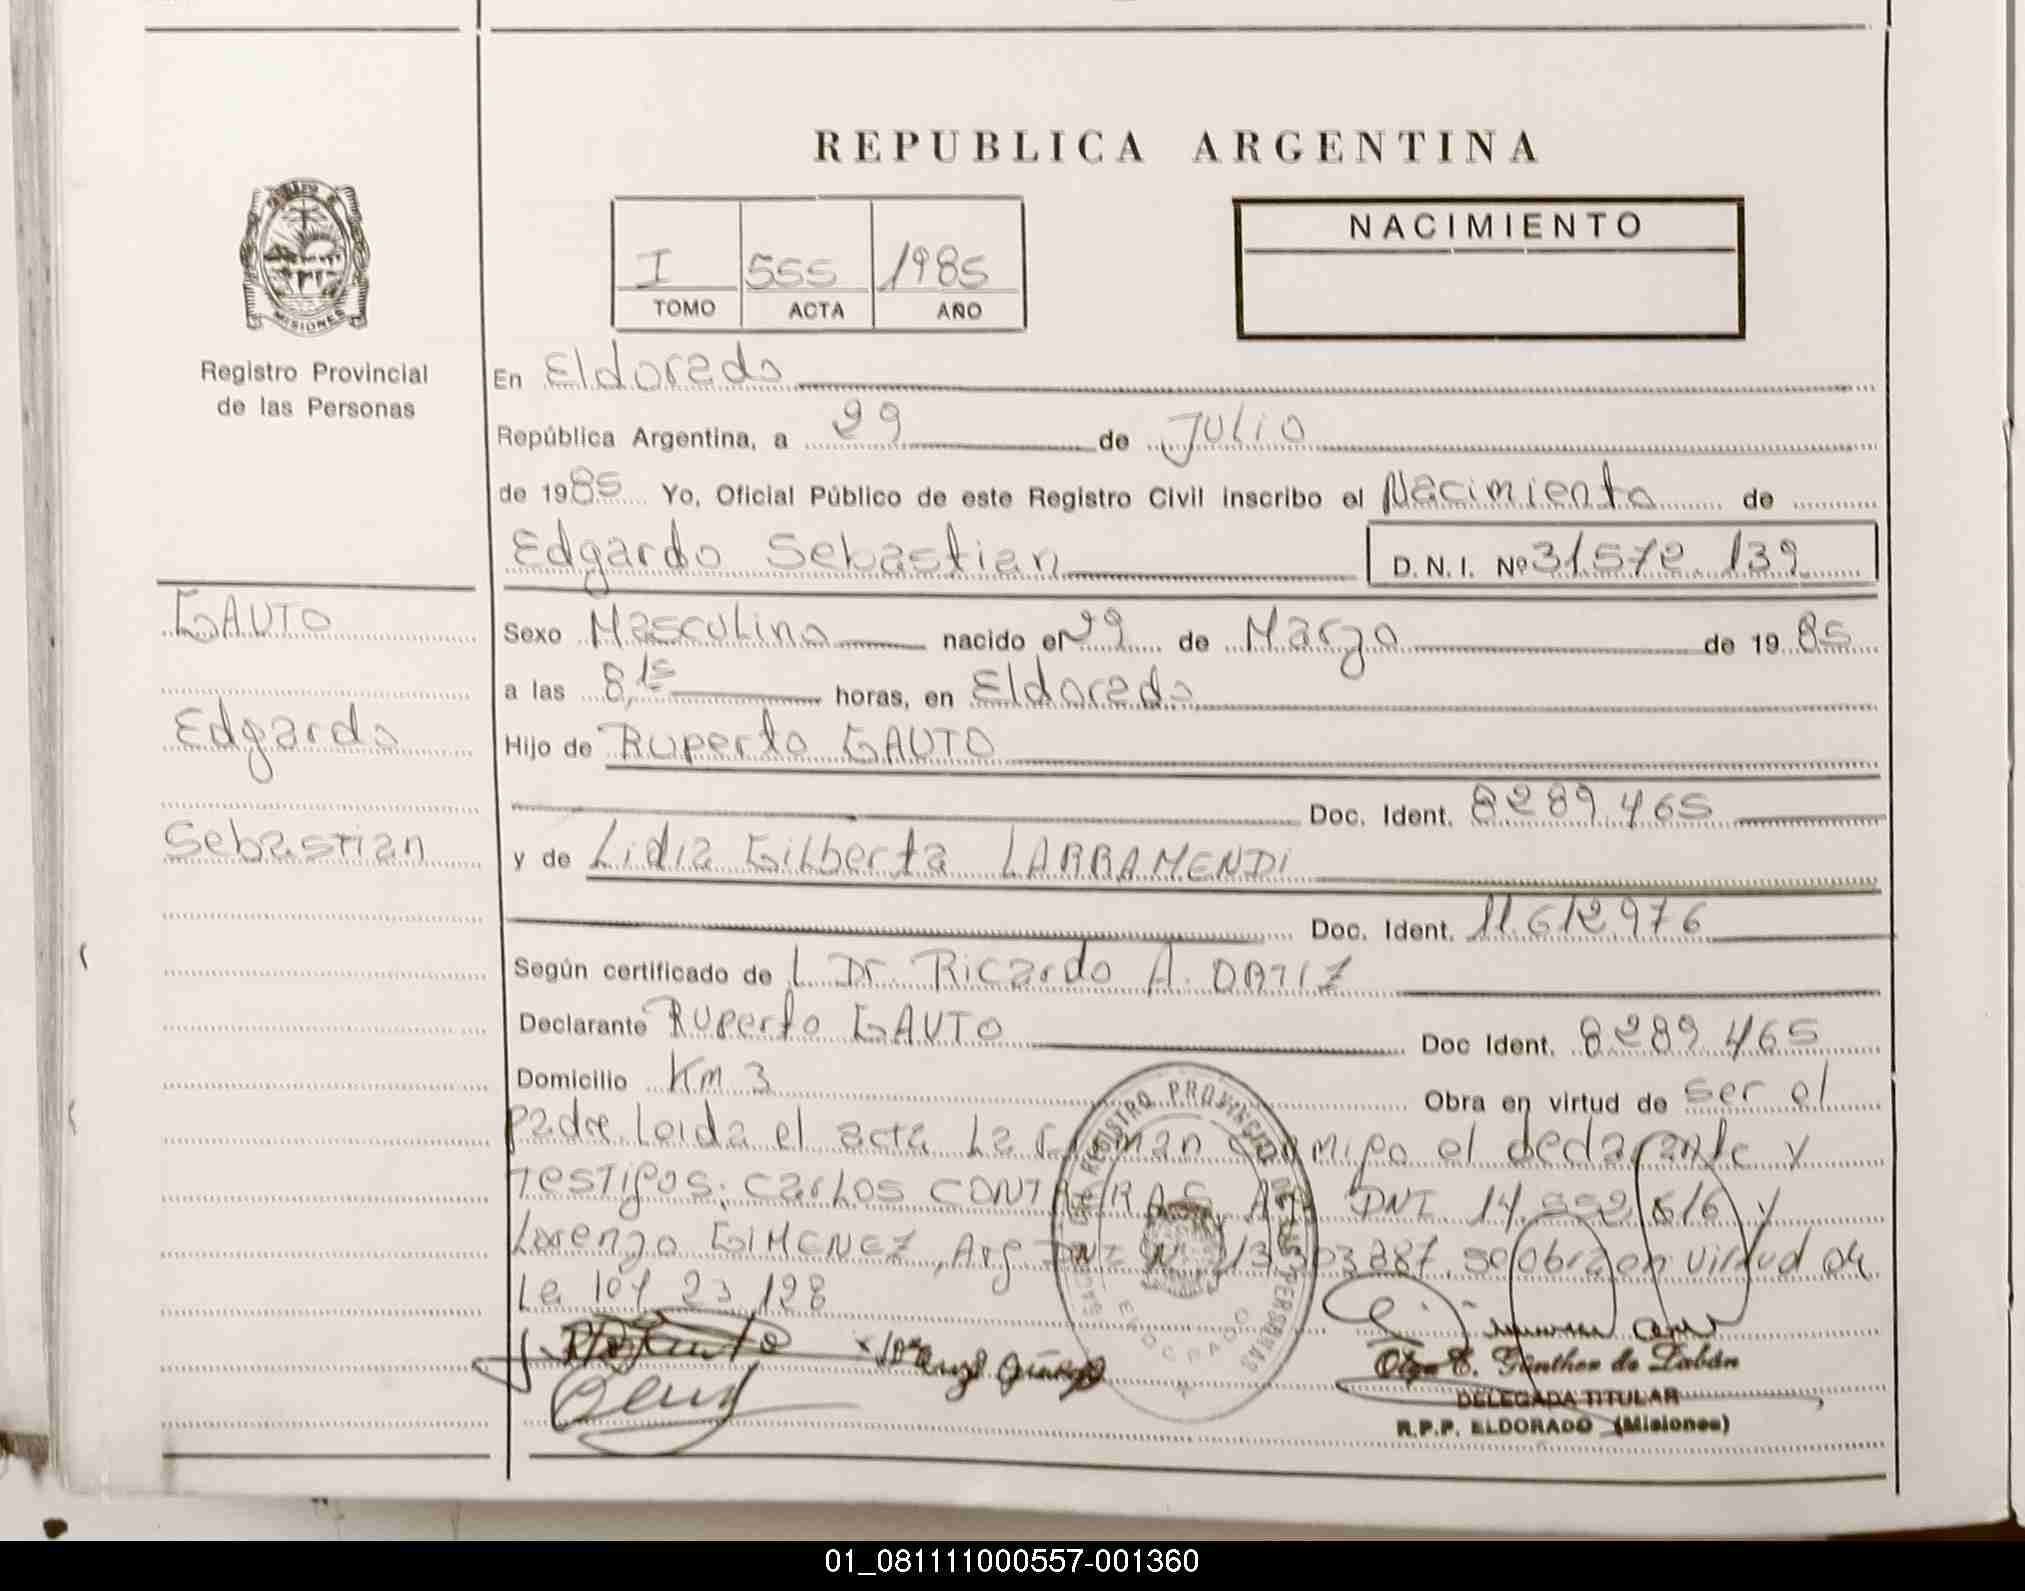 REPUBLICA ARGENTINA
MISIONES
Registro Provincial
de las Personas
I 555 1985
TOMO ACTA AÑO
NACIMIENTO
En Eldorado
República Argentina, a 29 de Julio
de 1985 Yo, Oficial Público de este Registro Civil inscribo el Nacimiento de
Edgardo Sebastian D.N.I. Nº 31.572.139
GAUTO
Edgardo
Sebastian
Sexo Masculino nacido el 29 de Marzo de 1985
a las 8,15 horas, en Eldorado
Hijo de Ruperto GAUTO
Doc. Ident. 8289465
y de Lidia Gilberta LARRAMENDI
Doc. Ident. 11.612.976
Según certificado de L. Dr. Ricardo A. ORTIZ
Declarante Ruperto GAUTO Doc Ident. 8289465
Domicilio Km 3 Obra en virtud de ser el
padre. Leida el acta la firman conmigo el declarante y
testigos: Carlos CONTRERAS, Arg DNI 14.552.616 y
Lorenzo GIMENEZ, Arg DNI Nº 13.303.887. se obra en virtud de
la ley 23.128
REGISTRO PROVINCIAL DE LAS PERSONAS
ELDORADO
Olga E. Günther de Zabán
DELEGADA TITULAR
R.P.P. ELDORADO (Misiones)
01_081111000557-001360